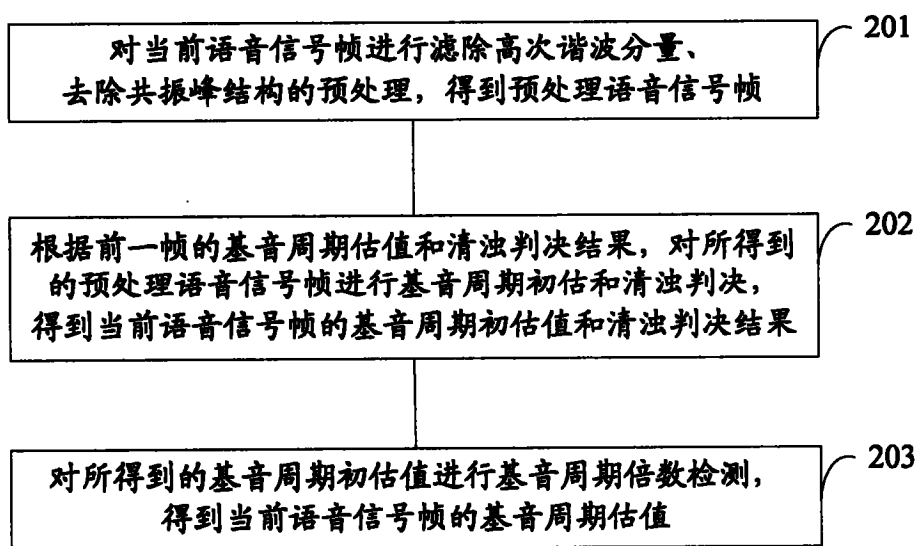 对当前语音信号帧进行滤除高次谐波分量、
去除共振峰结构的预处理，得到预处理语音信号帧
201
根据前一帧的基音周期估值和清浊判决结果，对所得到
的预处理语音信号帧进行基音周期初估和清浊判决，
得到当前语音信号帧的基音周期初估值和清浊判决结果
202
对所得到的基音周期初估值进行基音周期倍数检测，
得到当前语音信号帧的基音周期估值
203